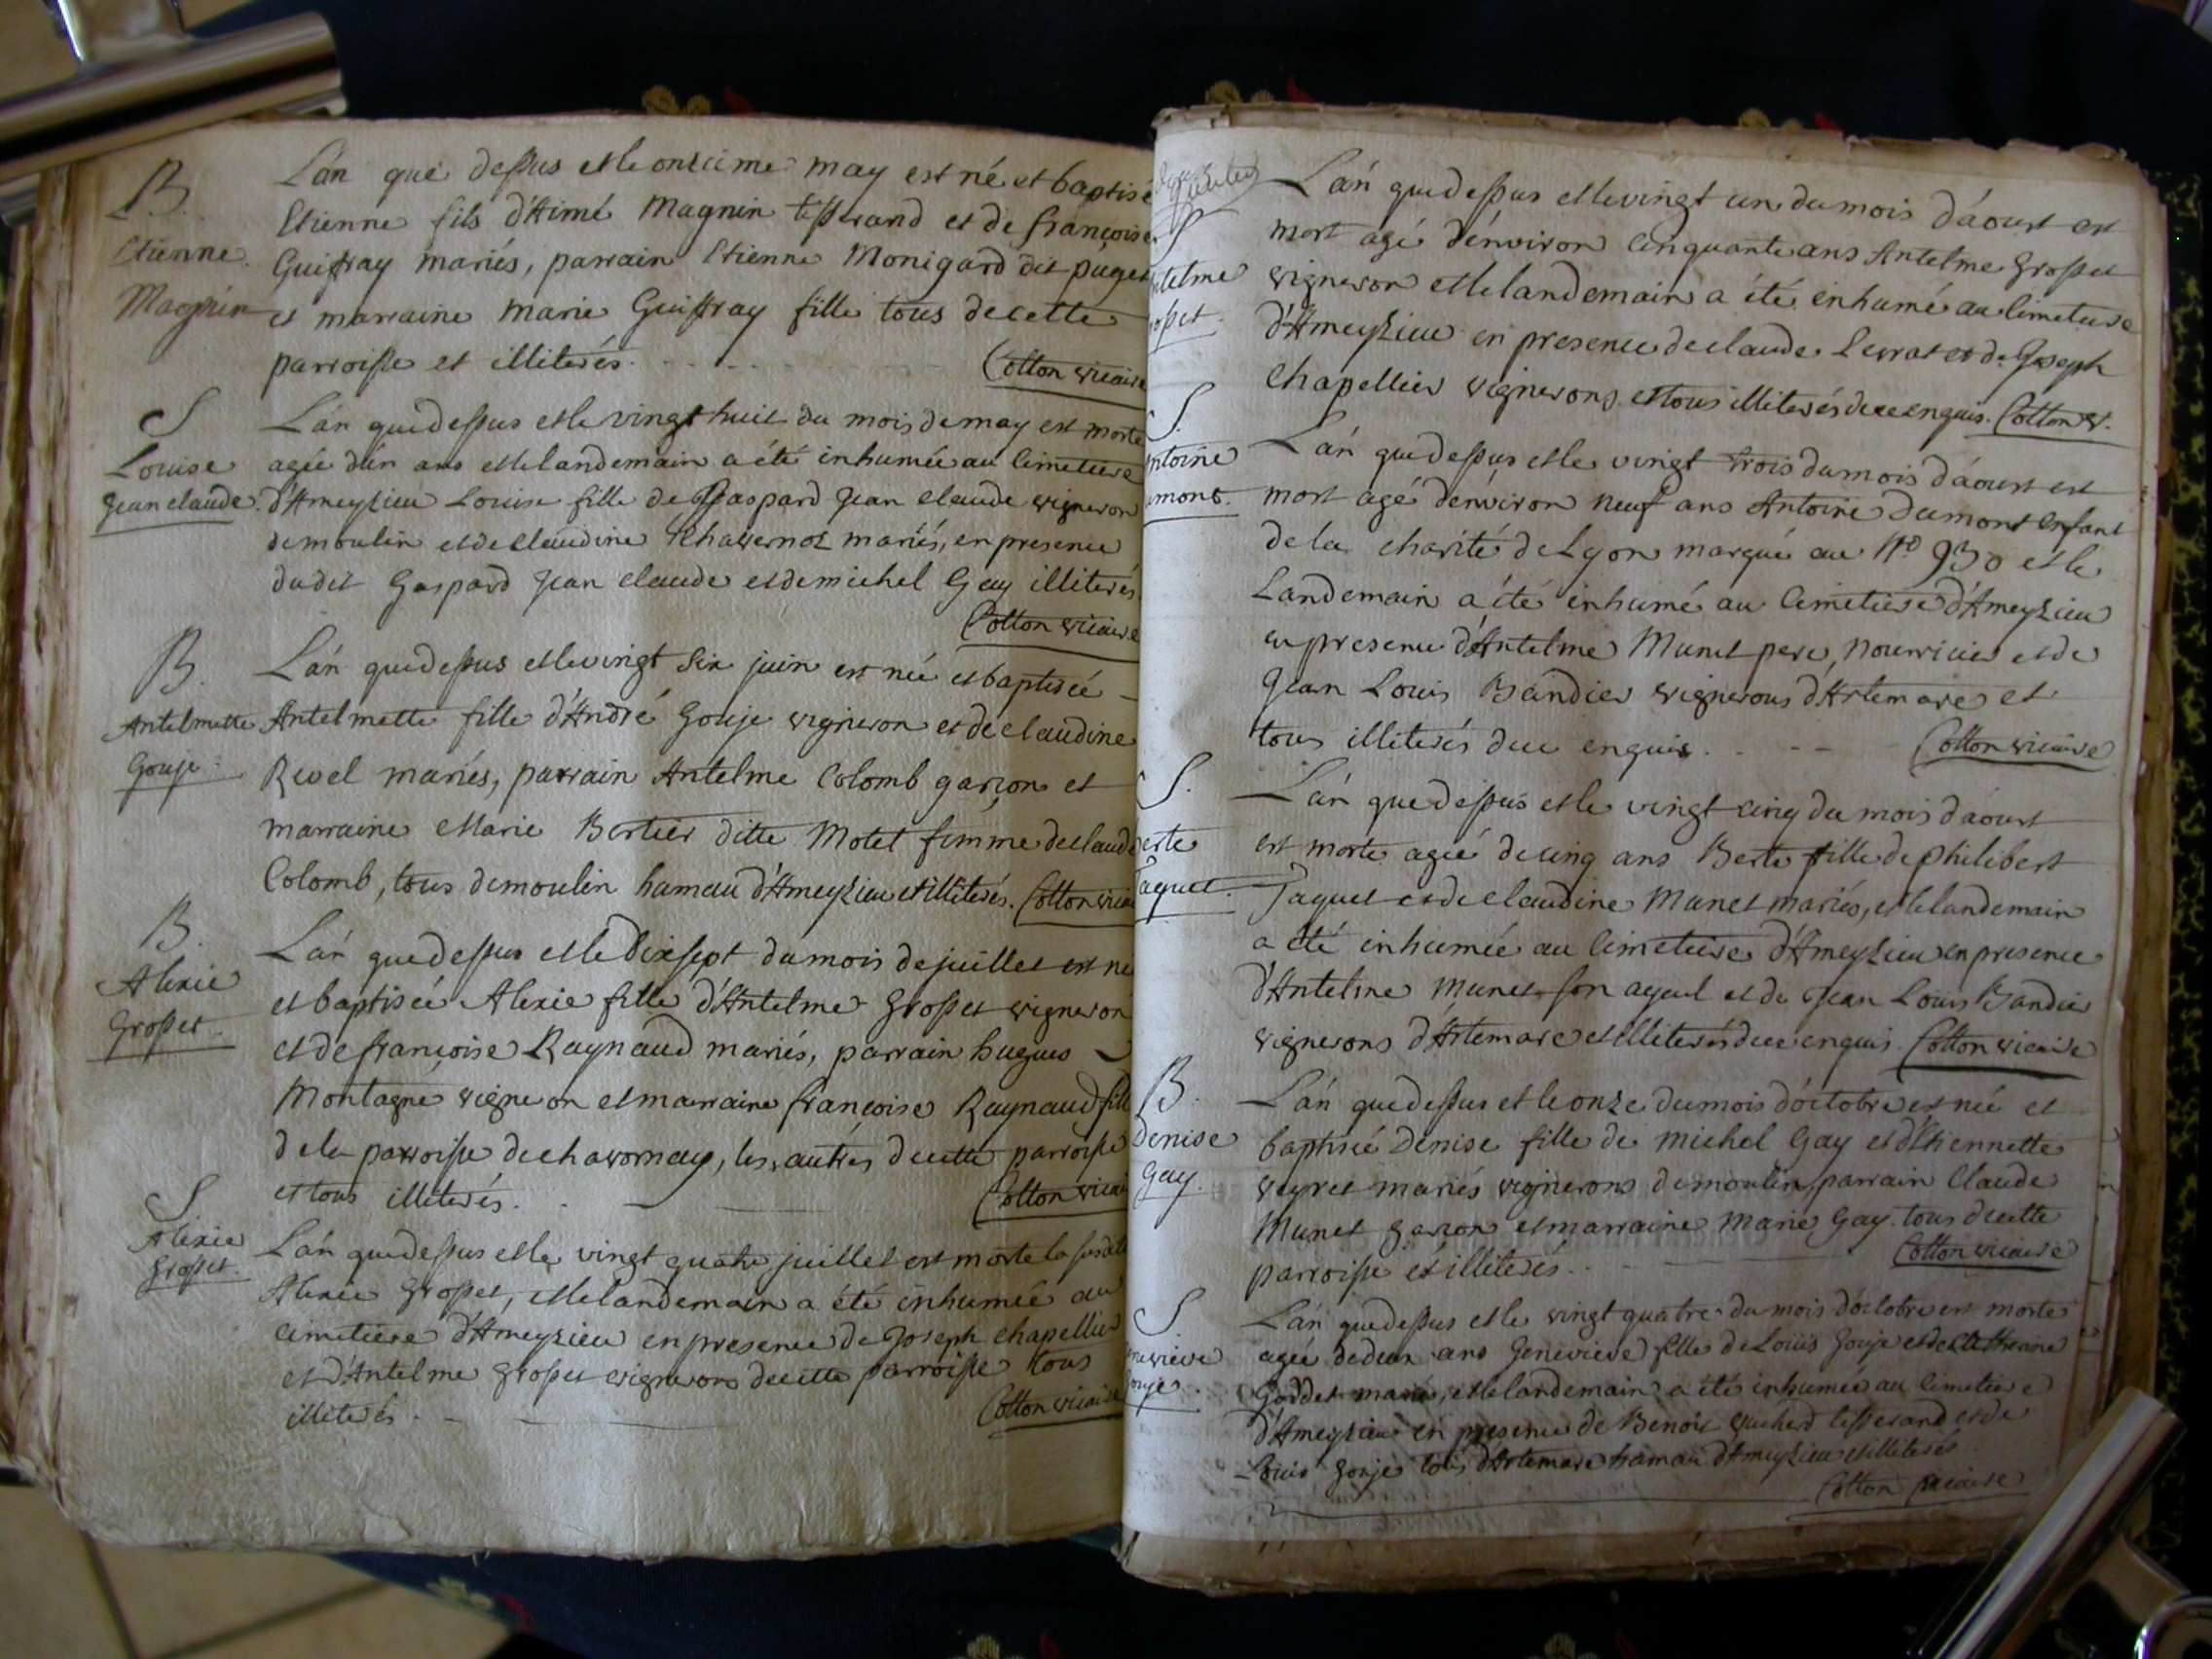 B.
Etienne
Magnin
L'án que dessus et le onzieme may est né et baptisé
Etienne fils d'Aimé Magnin tisserand et de françoise
Guiffray mariés, parrain Etienne Monigard dit puget
et marraine marie Guiffray fille tous de cette
parroisse et illiterés.
Cotton vicaire
S
Louise
Jean claude.
L'án que dessus et le vingt huit du mois de may est morte
agée d'un ans et le landemain a été inhumée au Cimetiere
d'Ameyzieu Louise fille de Gaspard Jean claude vigneron
demoulin et de claudine Chavernoz mariés, en presence
dudit Gaspard Jean claude et de michel Gay illiterés
Cotton vicaire
B.
Antelmette
Gouje
L'án que dessus et le vingt six juin est née et baptisée
Antelmette fille d'André Gouje vigneron et de claudine
Revel mariés, parrain Antelme Colomb garçon et
marraine Marie Bertier ditte Motet femme de claude
Colomb, tous demoulin hamau d'Ameyzieu et illiterés. Cotton vicai
B.
Alexie
Grosset.
L'án que dessus et le dixsept du mois de juillet est né
et baptisée Alexie fille d'Antelme Grosset vigneron
et de françoise Raynaud mariés, parrain hugues
Montagne vigneron et marraine françoise Raynaud fill
de la parroisse de chavornay, les autres de cette parroisse
et tous illiterés.
Cotton vicai
S.
Alexie
Grosset.
L'án que dessus et le vingt quatre juillet est morte la susdite
Alexie Grosset, et le landemain a été inhumée au
cimetiere d'Ameyzieu en presence de Joseph chapellier
et d'Antelme Grosset vignerons de cette parroisse tous
illiterés.
Cotton vicaire
S
ntelme
osset.
L'án que dessus et le vingt un du mois d'áoust est
mort agé d'environ Cinquante ans Antelme Grosset
vigneron et le landemain a été inhumé au Cimetiere
d'Ameyzieu en presence de claude Levrat et de Joseph
Chapellier vignerons et tous illiterés de ce enquis. Cotton v.
S.
ntoine
umont.
L'án que dessus et le vingt trois du mois d'áoust est
mort agé d'environ neuf ans Antoine Dumont enfant
de la charité de Lyon marqué au N.o 930 et le
Landemain a été inhumé au Cimetiere d'Ameyzieu
en presence d'Antelme Munet pere, nourricier et de
Jean Louis Bandier vignerons d'Artemare et
tous illiterés de ce enquis.
Cotton vicaire
S.
erte
Jaquet.
L'án que dessus et le vingt cinq du mois d'áoust
est morte agée de cinq ans Berte fille de philibert
Jaquet et de claudine Munet mariés, et le landemain
a été inhumée au Cimetiere d'Ameyzieu en presence
d'Antelme Munet son ayeul et de Jean Louis Bandier
vignerons d'Artemare et illiterés de ce enquis Cotton vicaire
B.
Denise
Gay.
L'án que dessus et le onze du mois d'octobre est née et
baptisée Denise fille de michel Gay et d'Etiennette
veyret mariés vignerons demoulin, parrain Claude
Munet garçon et marraine Marie Gay. tous de cette
parroisse et illiterés.
Cotton vicaire
S.
nevieve
ouje.
L'án que dessus et le vingt quatre du mois d'octobre est morte
agée de deux ans Genevieve fille de Louis Gouje et de Catherine
Goddet mariés, et le landemain a été inhumée au Cimetiere
d'Ameyzieu en presence de Benoit vuicherd tisserand et de
Louis Gouje tous d'Artemare hamau d'Ameyzieu et illiterés
Cotton vicaire